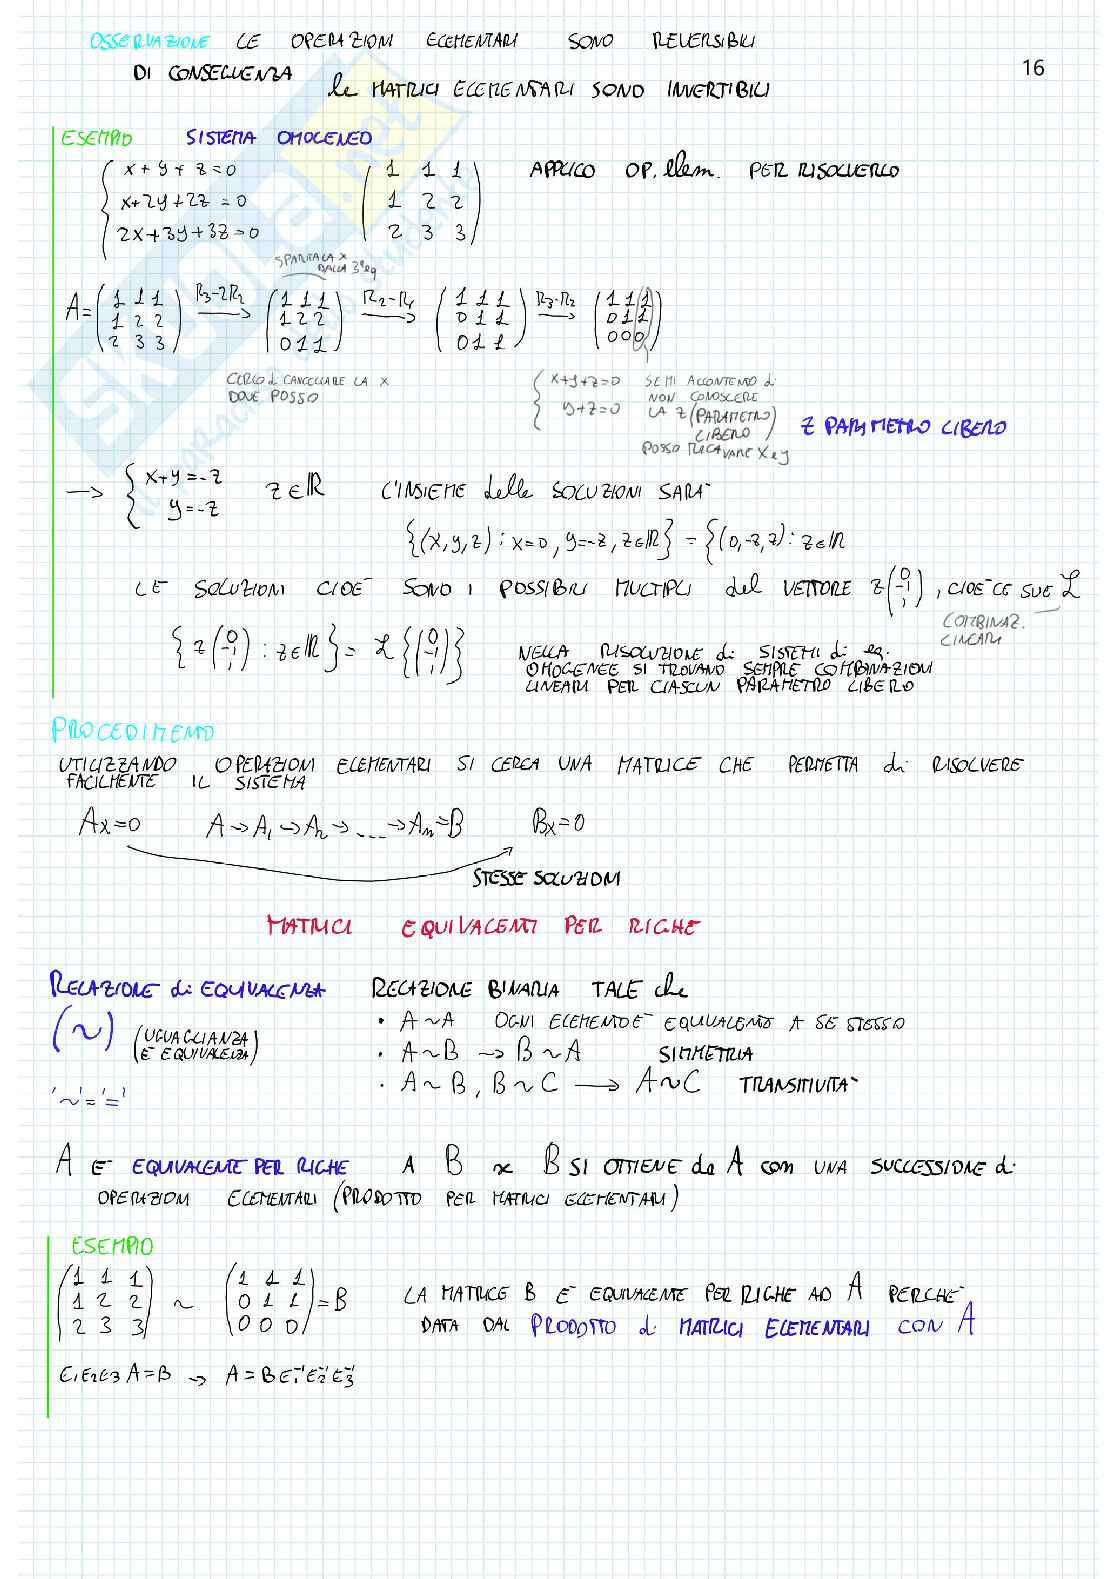 OSSERVAZIONE LE OPERAZIONI ELEMENTARI SONO REVERSIBILI
16
DI CONSEGUENZA le MATRICI ELEMENTARI SONO INVERTIBILI
ESEMPIO SISTEMA OMOGENEO
x+y+z=0 1 1 1 APPLICO OP. elem. PER RISOLVERLO
x+2y+2z=0 1 2 2
2x+3y+3z=0 2 3 3
SPARITA LA x
DALLA 3ª eq
A= (1 1 1) R3-2R2 (1 1 1) R2-R1 (1 1 1) R3-R2 (1 1 1)
1 2 2 → 1 2 2 → 0 1 1 → 0 1 1
2 3 3 0 1 1 0 1 1 0 0 0
CERCO di CANCELLARE LA x
DOVE POSSO
x+y+z=0 SE MI ACCONTENTO di
NON CONOSCERE
y+z=0 LA Z (PARAMETRO LIBERO)
POSSO RICAVARE x e y
Z PARAMETRO LIBERO
→ { x+y=-z z∈ℝ L'INSIEME delle SOLUZIONI SARA'
y=-z
{(x,y,z): x=0, y=-z, z∈ℝ} = {(0,-z,z): z∈ℝ
LE SOLUZIONI CIOE' SONO I POSSIBILI MULTIPLI del VETTORE z(0 -1 1), CIOE' LE SUE L
COMBINAZ.
LINEARI
{z(0 -1 1): z∈ℝ} = L{(0 -1 1)}
NELLA RISOLUZIONE di SISTEMI di eq.
OMOGENEE SI TROVANO SEMPRE COMBINAZIONI
LINEARI PER CIASCUN PARAMETRO LIBERO
PROCEDIMENTO
UTILIZZANDO OPERAZIONI ELEMENTARI SI CERCA UNA MATRICE CHE PERMETTA di RISOLVERE
FACILMENTE IL SISTEMA
Ax=0 A→A1→A2→....→An=B Bx=0
STESSE SOLUZIONI
MATRICI EQUIVALENTI PER RIGHE
RELAZIONE di EQUIVALENZA RELAZIONE BINARIA TALE che
(~) (UGUAGLIANZA
E' EQUIVALENZA)
• A~A OGNI ELEMENTO E' EQUIVALENTE A SE STESSO
• A~B → B~A SIMMETRIA
• A~B, B~C → A~C TRANSITIVITA'
'~'='='
A E' EQUIVALENTE PER RIGHE A B se B SI OTTIENE da A com UNA SUCCESSIONE di
OPERAZIONI ELEMENTARI (PRODOTTO PER MATRICI ELEMENTARI)
ESEMPIO
1 1 1 1 1 1
1 2 2 ~ 0 1 1 =B LA MATRICE B E' EQUIVALENTE PER RIGHE AD A PERCHE'
2 3 3 0 0 0 DATA DAL PRODOTTO di MATRICI ELEMENTARI CON A
E1E2E3 A=B → A=B E1⁻¹E2⁻¹E3⁻¹